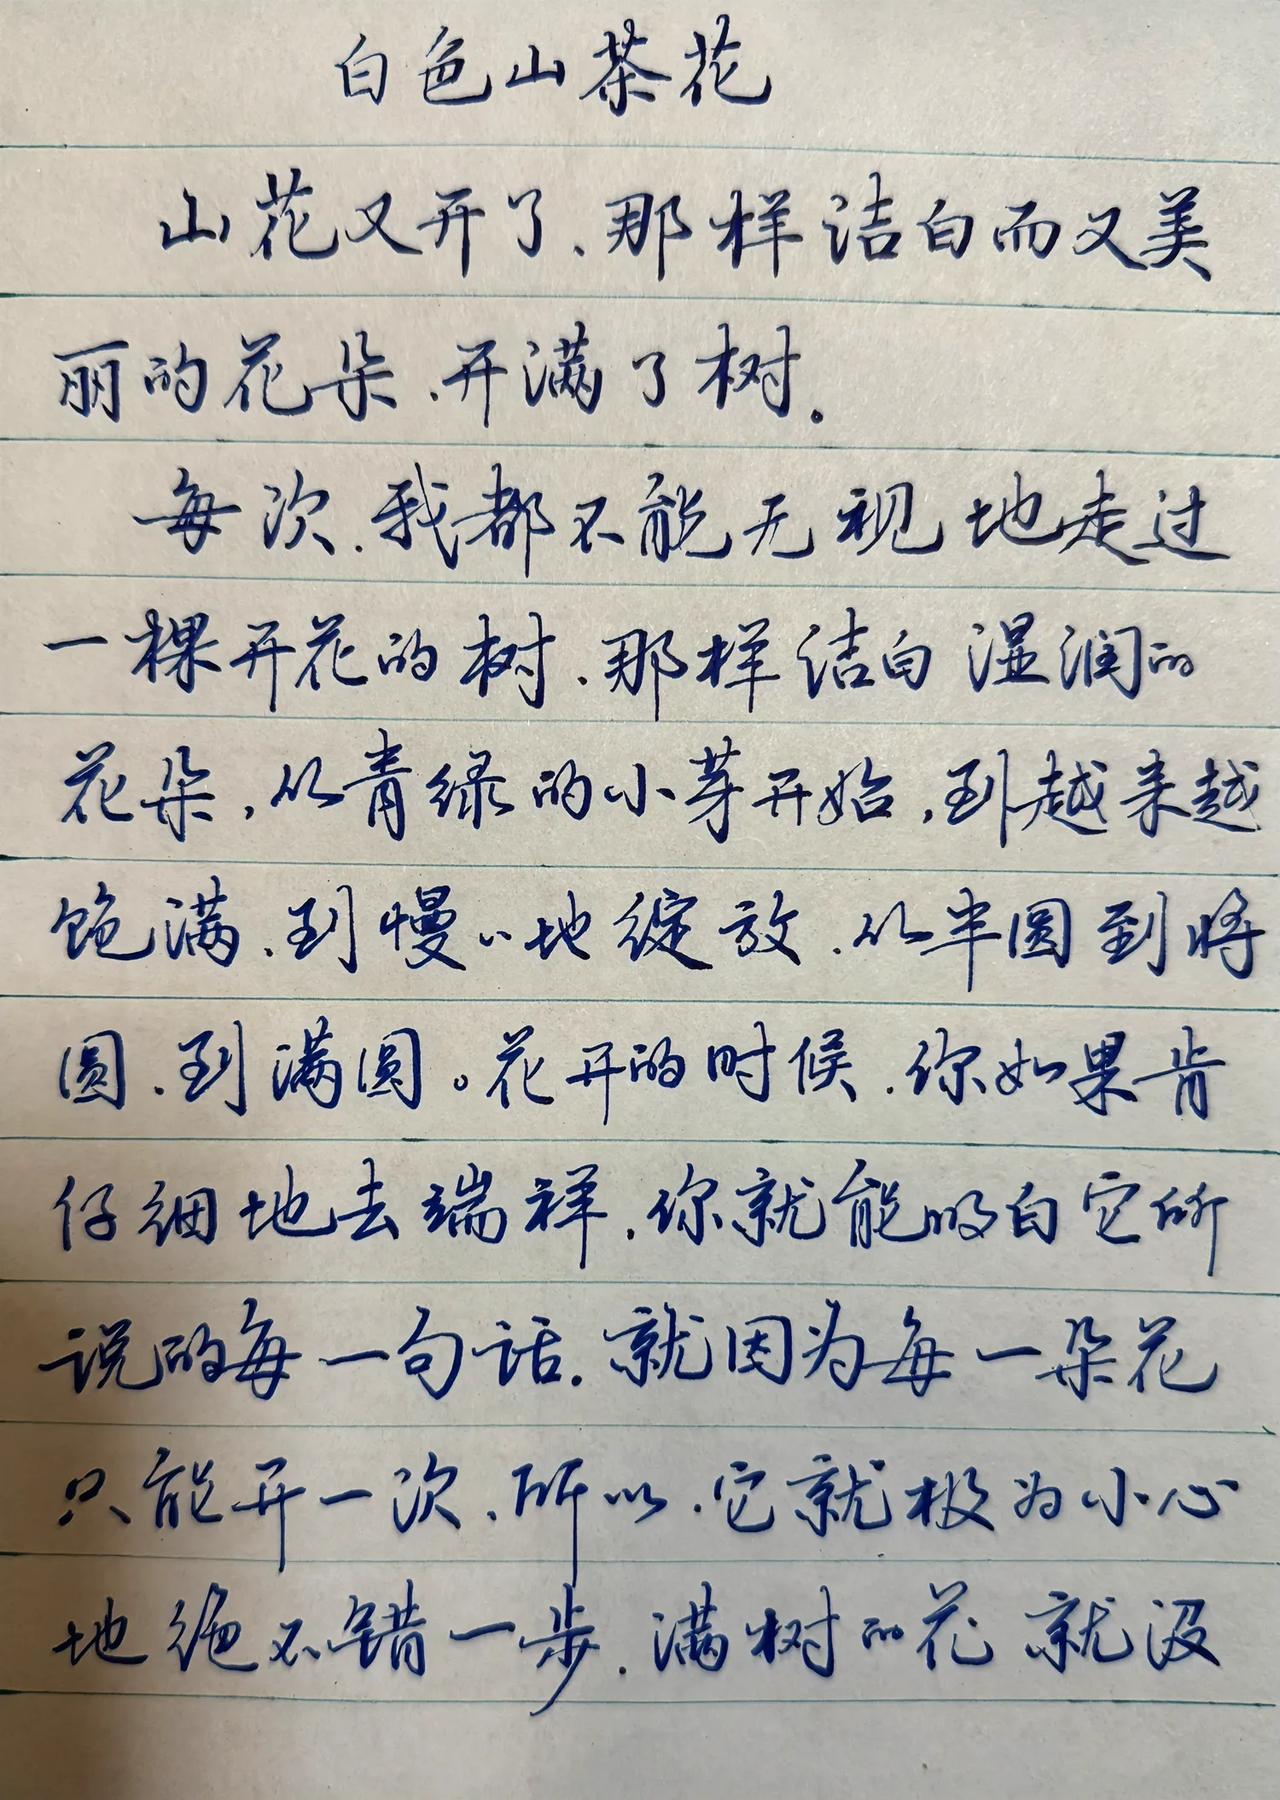 白色山茶花
山花又开了、那样洁白而又美
丽的花朵、开满了树。
每次、我都不能无视地走过
一棵开花的树、那样洁白湿润的
花朵,从青绿的小芽开始,到越来越
饱满、到慢〃地绽放、从半圆到将
圆、到满圆。花开的时候、你如果肯
仔细地去端祥、你就能明白它所
说的每一句话。就因为每一朵花
只能开一次、所以、它就极为小心
地绝不错一步、满树的花就没